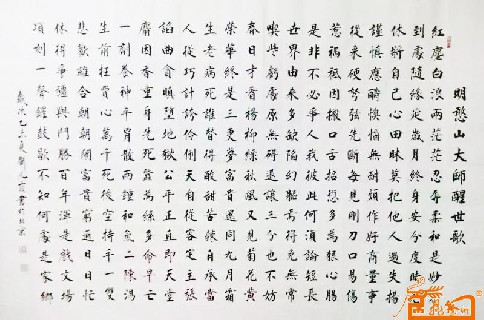 明憨山大師醒世歌
紅塵白浪兩茫茫忍辱柔和是妙方
到處隨緣延歲月終身安分度時光
休將自己心田昧莫把他人過失揚
謹慎應酬無懊惱耐煩作事好商量
從來硬弩弦先斷每見剛刀口易傷
惹禍祇因搬口舌招愆多為黑心腸
是非不必爭人我彼此何須論短長
世界由來多缺陷幻軀焉得免無常
吃些虧處原無礙退讓三分也不妨
春日才看楊柳綠秋風又見菊花黃
榮華終是三更夢富貴還同九月霜
生老病死誰替得酸甜苦辣自承當
人從巧計誇伶俐天自從容定主張
諂曲貪瞋墮地獄公平正直即天堂
麝因香重身先死蠶為絲多命早亡
一劑養神平胃散兩鐘和氣二陳湯
生前枉費心千萬死後空持手一雙
悲歡離合朝朝鬧富貴窮通日日忙
休得爭強與鬥勝百年渾是戲文場
頃刻一聲鑼鼓歇不知何處是家鄉
歲次乙未夏劉光霞書於北京